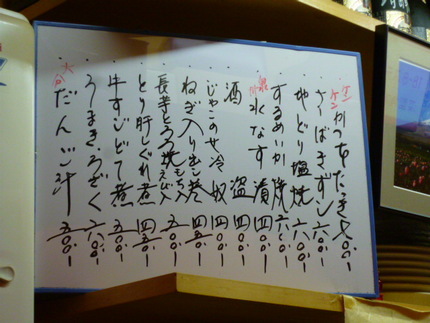 かつおたたき 七〇〇.ー
さーばきずし 六〇〇.ー
地どり塩焼 六〇〇.ー
するめいか焼 六〇〇.ー
水なす漬 四〇〇.ー
酒盗 四〇〇.ー
じゃこのせ冷奴 四〇〇.ー
ねぎ入り出し巻 四五〇.ー
長芋とろろ焼 五〇〇.ー
とり肝しぐれ煮 四五〇.ー
牛すじどて煮 五〇〇.ー
うまきうざく 六〇〇.ー
だんご汁 五〇〇.ー